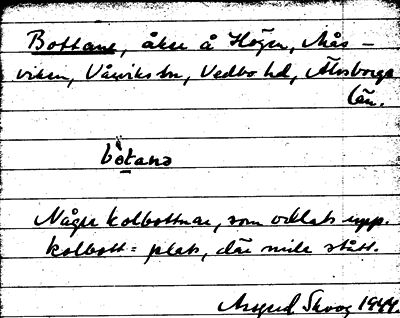 Bottane, åker å Högen, Mås-
viken, Vårviks sn, Vedbo hd, Älvsborgs
län.
bòtana
Några kolbottnar, som odlats upp.
kolbott = plats, där mila stått.
Astrid Skoog 1944.